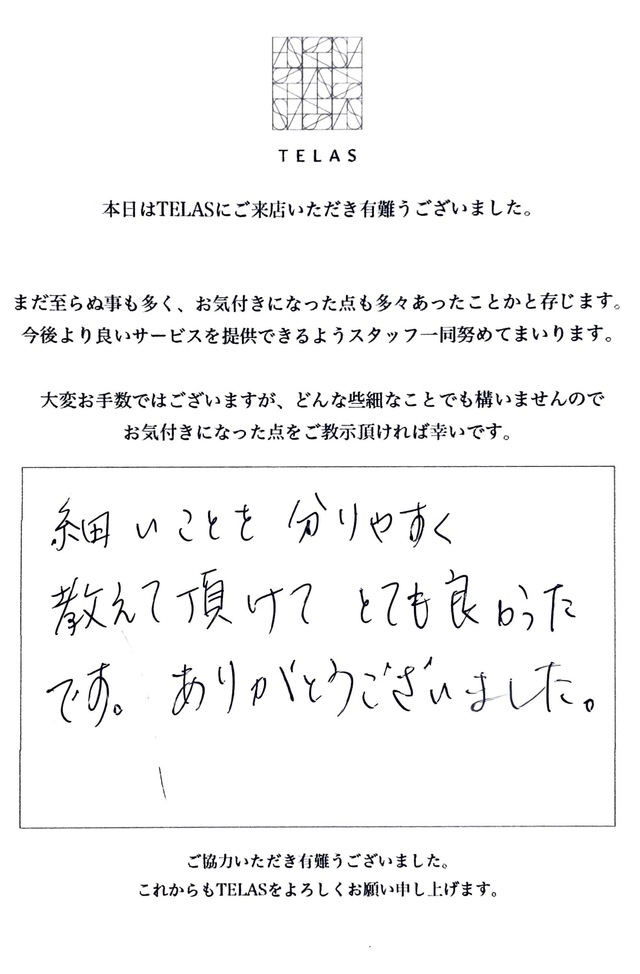 TELAS
本日はTELASにご来店いただき有難うございました。
まだ至らぬ事も多く、お気付きになった点も多々あったことかと存じます。
今後より良いサービスを提供できるようスタッフ一同努めてまいります。
大変お手数ではございますが、どんな些細なことでも構いませんので
お気付きになった点をご教示頂ければ幸いです。
細いことを 分りやすく
教えて頂けて とても良かった
です。ありがとうございました。
ご協力いただき有難うございました。
これからもTELASをよろしくお願い申し上げます。